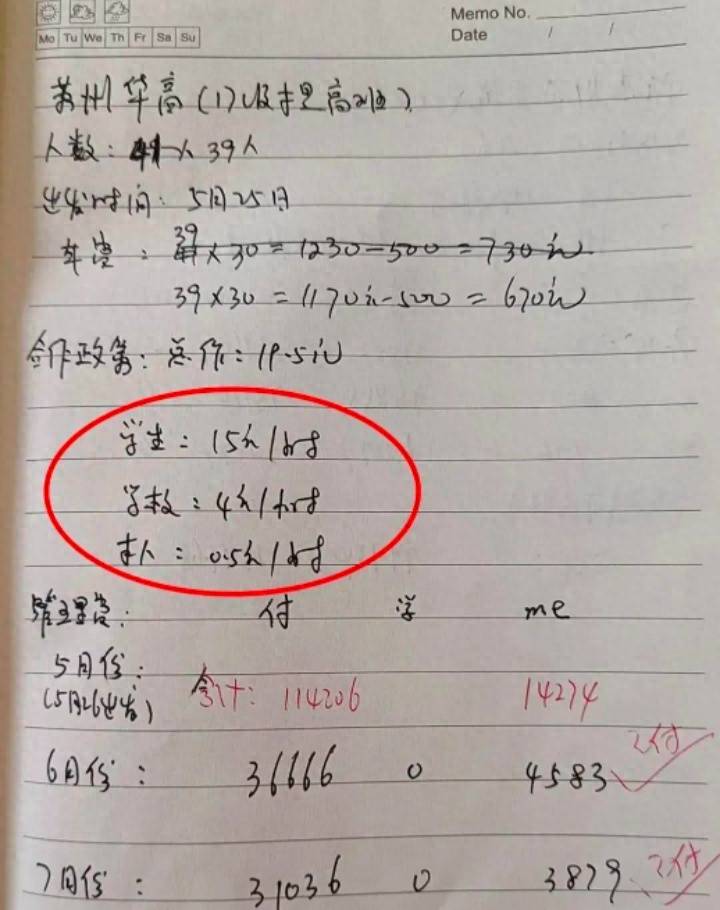 Memo No.
Date / /
Mo Tu We Th Fr Sa Su
苏州华高(1)收
人数: 41人 39人
出发时间: 5月25日
车费: 39 41×30=1230-500=730元
39×30=1170元-500=670元
合作政策: 总价: 19.5元
学生: 15元/时
学校: 4元/时
本人: 0.5元/时
管理费: 付 学 me
5月份:
(5月26出发) 合计: 114206 14274
6月份: 36666 0 4583 已付
7月份: 31036 0 3879 已付